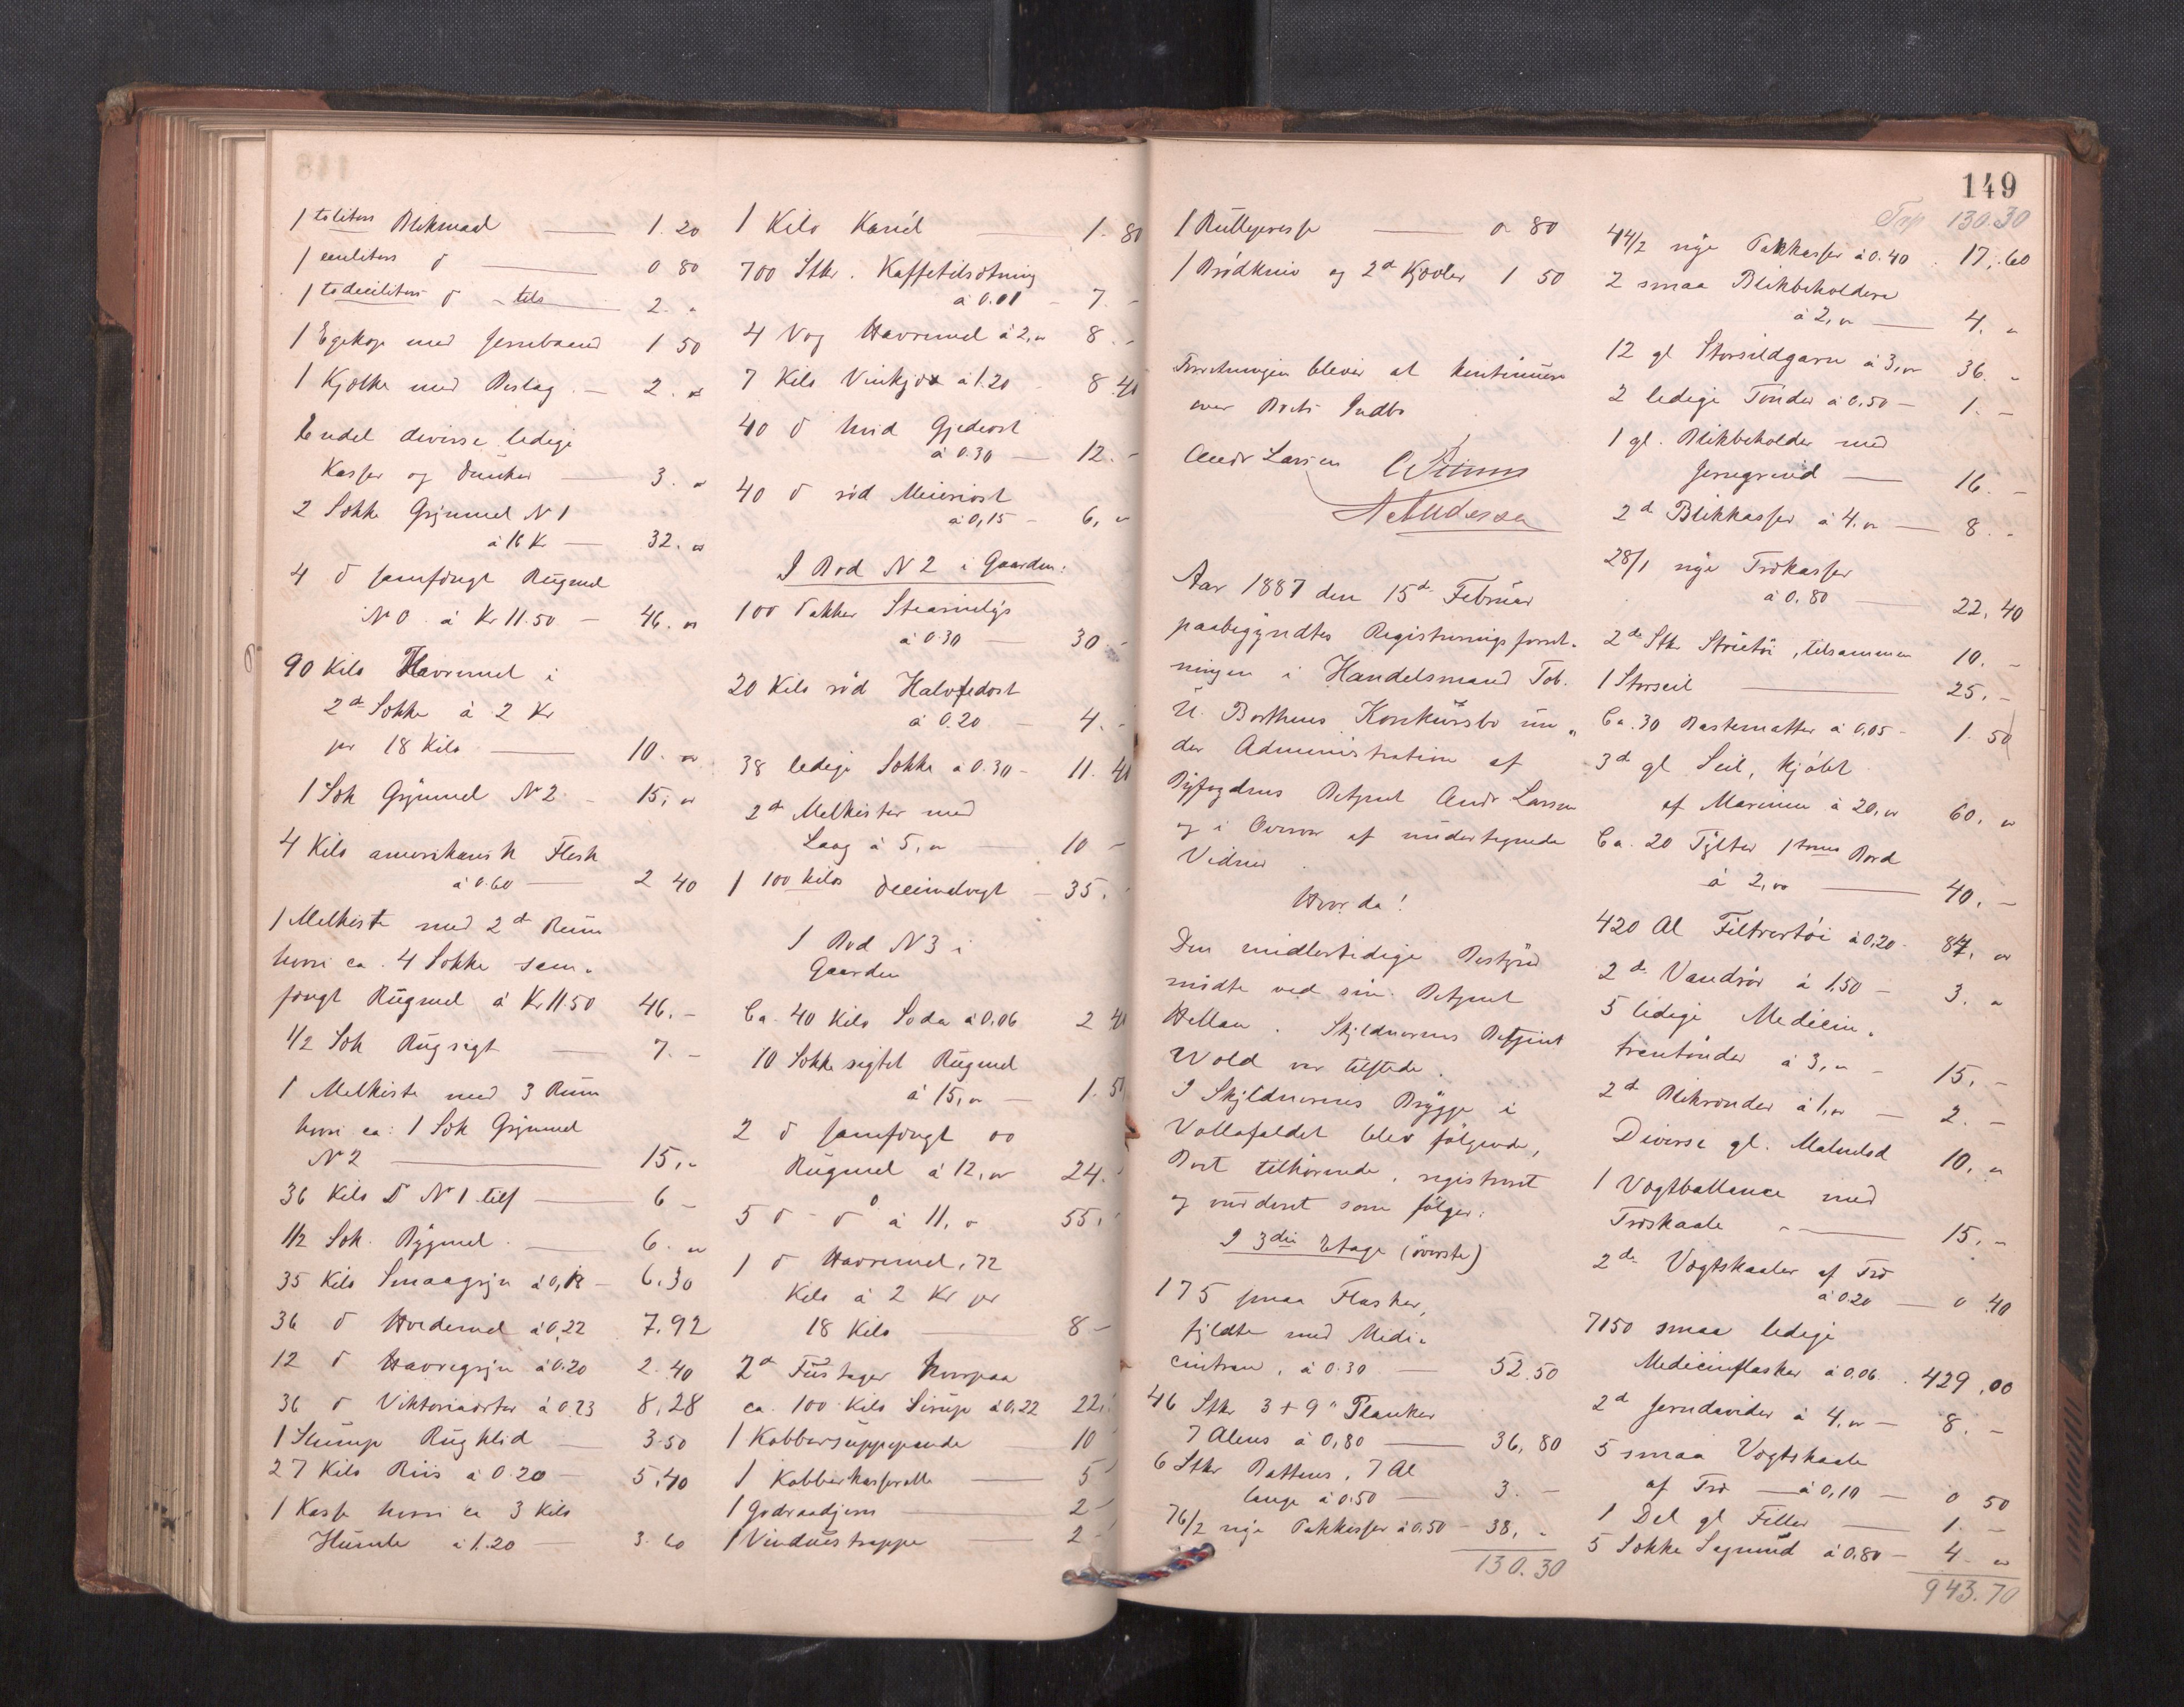 1 toliters Blikmaal — 1. 20
1 enliters d — 0 80
1 todeciliters d – tils — 2. "
1 Egekop med Jernbaand 1 50
1 Kjælke med Beslag. — 2. "
Endel diverse ledige
Kasser og Dunker — 3. "
2 Sække Grynmel N 1
à 16 Kr — 32. "
4 d samfængt Rugmel
N 0. à Kr 11.50 — 46. "
90 Kilo Havremel i
2d Sække à 2 Kr
pr 18 Kilo — 10. "
1 Sæk Grynmel N 2 – 15, "
4 Kilo amerikansk Flesk
à 0.60 — 2 40
1 Melkiste med 2d Rum
hvori ca. 4 Sække sam-
fængt Rugmel à Kr 11.50 46. –
1/2 Sæk Rugsigt — 7. –
1 Melkiste med 3 Rum
hvori ca: 1 Sæk Grynmel
N 2 — 15, "
36 Kilo D N 1 tils — 6 –
1/2 Sæk. Bygmel. — 6. "
35 Kilo Smaagryn à 0,18 – 6.30
36 d Hvedemel à 0,22 7.92
12 d Havregryn à 0.20 2.40
36 d Viktoriaærter à 0.23 8,28
1 Slump Rugklid — 3.50
27 Kilo Riis à 0.20 — 5.40
1 Kasse hvori ca 3 Kilo
Humle à 1.20 — 3.60
1 Kilo Kanél — 1. 80
700 Stkr. Kaffetilsætning
à 0.01 – 7. –
4 Vog Havremel à 2, " 8. –
7 Kilo Vinkjæx à 1.20 – 8.40
40 d hvid Gjedeost
à 0.30 — 12. –
40 d rød Meieriost
à 0,15 – 6, "
I Bod N 2 i Gaarden:
100 Pakker Stearinlys
à 0.30 — 30. –
20 Kilo rød Halvfedost
à 0.20 — 4. –
38 ledige Sække à 0.30 – 11. 40
2d Melkister med
Laag à 5, " — 10 –
1 100 kilos Decimalvægt — 35. –
I Bod N 3 i
Gaarden
Ca. 40 Kilo Soda à 0,06 2 40
10 Sække sigtet Rugmel
à 15, " — 1. 5
2 d samfængt 00
Rugmel à 12, " 24. –
5 d – d 0 à 11, " 55. –
1 d Havremel, 72
Kilo à 2 Kr pr
18 Kilo — 8 –
2d Fustager hvorpaa
ca. 100 Kilo Sirup à 0,22 22, –
1 Kobbersuppepande 10 –
1 Kobberkasserolle — 5 –
1 Godraadjern — 2 –
1 Vinduestrappe — 2 –
149
1 Rullepresse — 0 80
1 Brødkniv og 2d Kjævler 1 50
Forretningen bliver at kontinuere
over Boets Indbo
Andr Larsen
A Andersen
Aar 1887 den 15d Februar
paabegyndtes Registreringsforret-
ningen i Handelsmand Tob.
U. Borthens Konkursbo un-
der Administration af
Byfogdens Betjent Andr Larsen
og i Overvær af undertegnede
Vidner.
Hvor da!
Den midlertidige Bestyrer
mødte ved sin Betjent
Hellan. Skyldnerens Betjent
Wold var tilstede.
I Skyldnerens Brygge i
Vollafaldet blev følgende,
Boet tilhørende, registreret
og vurderet som følger:
I 3die Etage (øverste)
175 smaa Flasker,
fyldte med Medi-
cintran, à 0.30 — 52.50
46 Stkr 3 + 9" Planker
7 Alens à 0,80 — 36,80
6 Stkr Battens, 7 Al
lange à 0.50 — 3. –
76/2 nye Pakkasser à 0,50 – 38, "
130.30
Trsp 130.30
44/2 nye Pakkasser à 0.40 . 17,60
2 smaa Blikbeholdere
à 2, " — 4. "
12 gl Storsildgarn à 3, " 36. "
2 ledige Tønder à 0,50 — 1. –
1 gl. Blikbeholder med
Jerngrind — 16. –
2d Blikkasser à 4. " — 8. –
28/1 nye Trækasser
à 0.80 — 22,40
2d Stkr Strietøi, tilsammen 10. –
1 Storseil — 25. –
Ca. 30 Bastematter à 0,05 – 1. 50
3d gl Seil, kjøbt
af Marinen à 20, " 60, "
Ca. 20 Tylter 1 toms Bord
à 2,00 — 40. –
420 Al Filtrertøi à 0,20. 84, "
2d Vandrør à 1,50 – 3. "
5 ledige Medicin-
trantønder à 3, " – 15. –
2d Blikrender à 1, " — 2. –
Diverse gl. Malnelod 10, "
1 Vægtballance med
Træskaale — 15. –
2d Vægtskaaler af Træ
à 0.20 — 0 40
7150 smaa ledige
Medicinflasker à 0,06. . 429,00
2d Jerndavider à 4, " — 8. –
5 smaa Vægtskaale
af Træ — à 0,10 — 0 50
1 Del gl Filler — 1. –
5 Sække Sagmud à 0.80 – 4 "
943.70